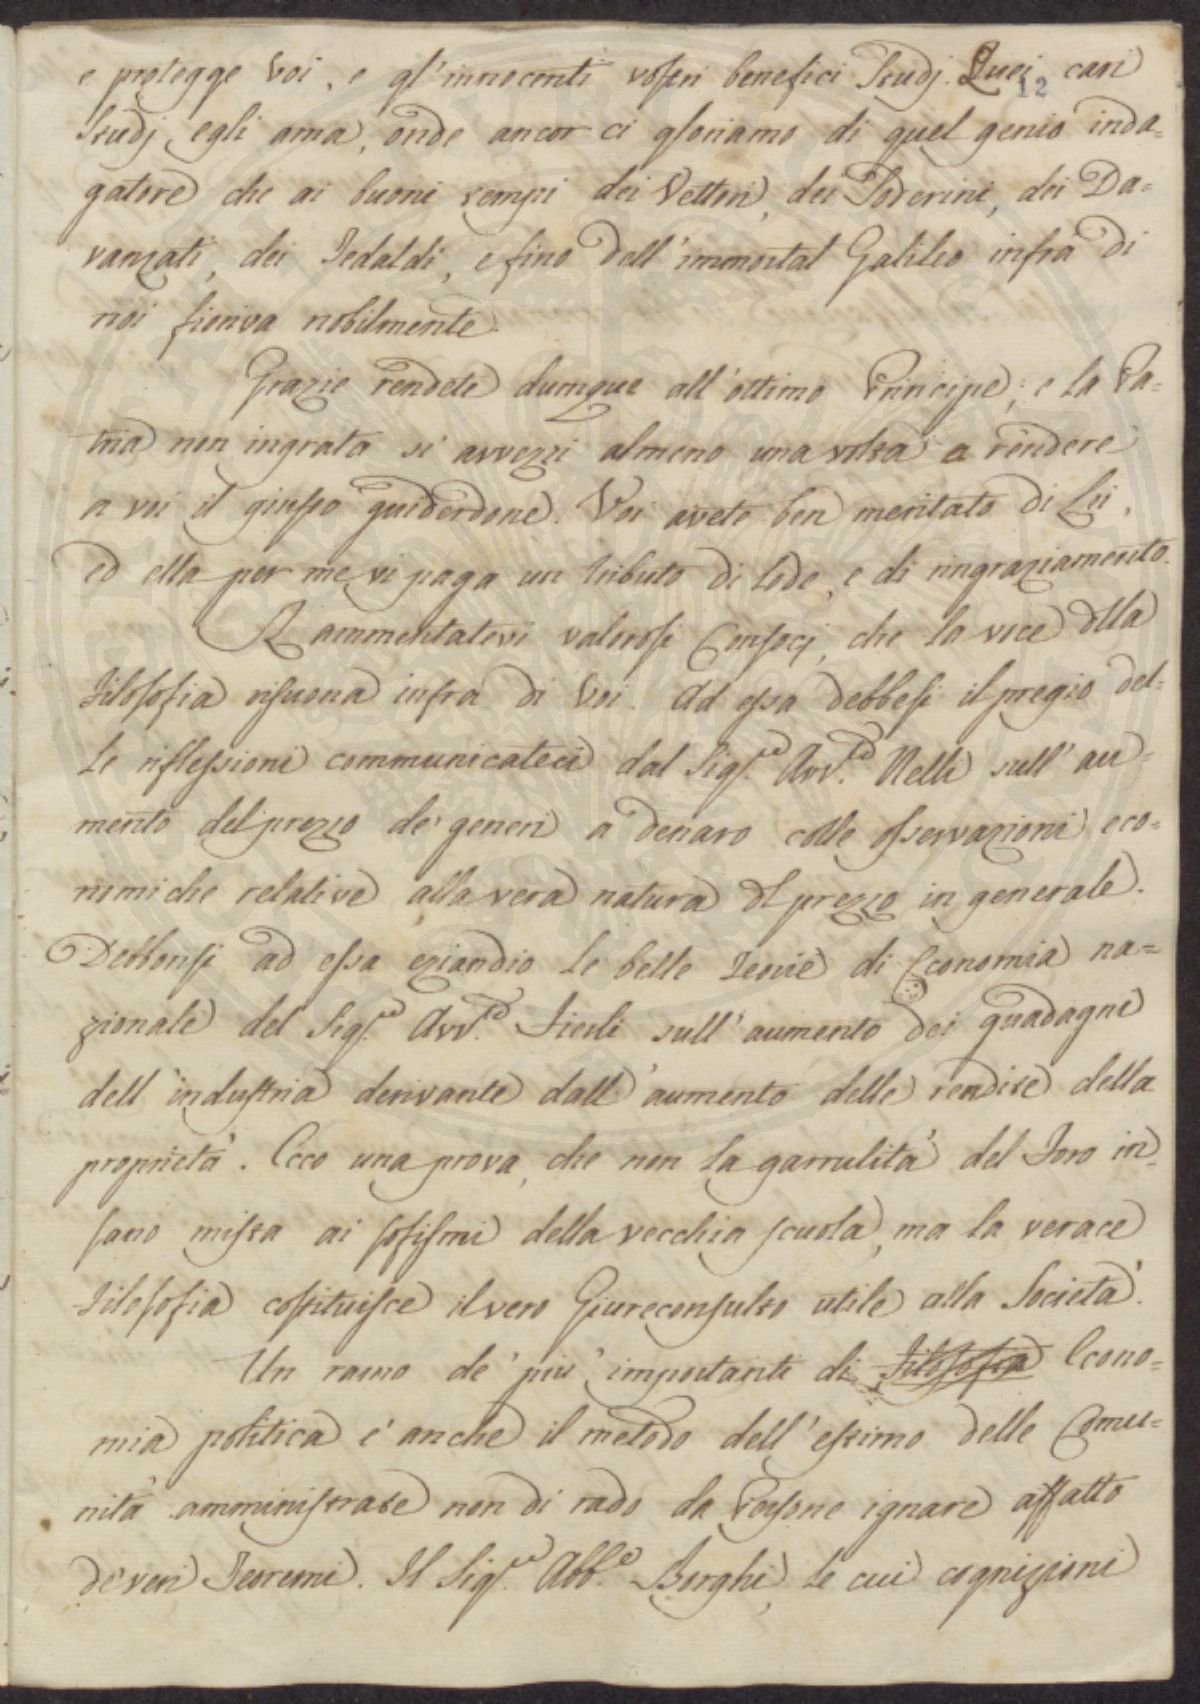 e protegge Voi, e gl'innocenti vostri benefici studj. Quei cari
12
studj egli ama, onde ancor ci gloriamo di quel genio inda=
gatore che ai buoni tempi dei Vettori, dei Soderini, dei Da=
vanzati, dei Tedaldi, e fino dall'immortal Galileo infra di
noi fioriva nobilmente.
Grazie rendete dumque all'ottimo Principe; e la Pa=
tria non ingrata si avvezzi almeno una volta a rendere
a voi il giusto guiderdone. Voi avete ben meritato di Lei,
ed ella per me vi paga un tributo di lode, e di ringraziamento.
Rammentatevi valorosi Consocj, che la voce della
Filosofia risuona infra di Voi. Ad essa debbesi il pregio del=
le riflessioni communicateci dal Sig.re Avv.to Nelli sull'au=
mento del prezzo de' generi a denaro colle osservazioni eco=
nomiche relative alla vera natura del prezzo in generale.
Debbonsi ad essa eziandio le belle Teorie di Economia na=
zionale del Sig.re Avv.to Fierli sull'aumento dei guadagni
dell'industria derivante dall'aumento delle rendite della
proprietà. Ecco una prova, che non la garrulità del Foro in=
sano mista ai sofismi della vecchia scuola, ma la verace
Filosofia costituisce il vero Giureconsulto utile alla Società.
Un ramo de' più importanti di Filosofia Econo=
mia politica è anche il metodo dell'estimo delle Comu=
nità amministrate non di rado da Persone ignare affatto
de' veri Teoremi. Il Sig.re Abb.e Borghi, le cui cognizioni